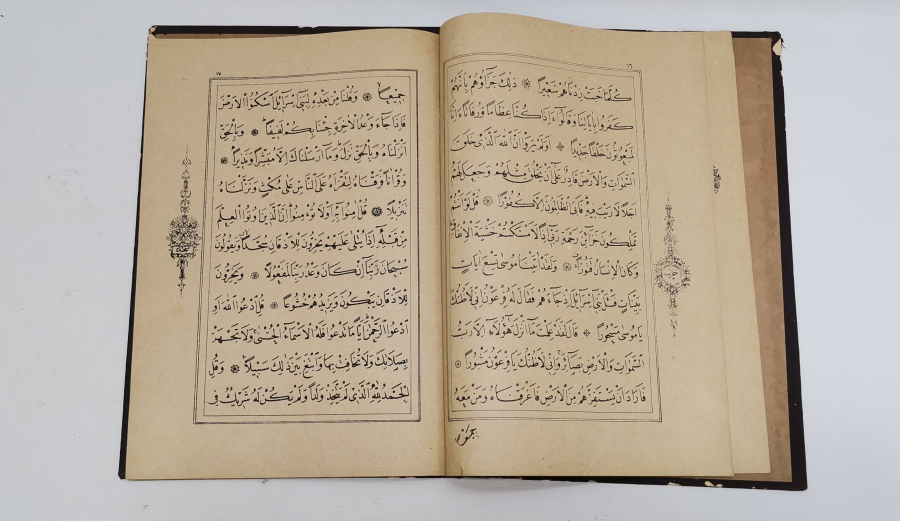 ١٦
كُلَّمَا خَبَتْ زِدْنَاهُمْ سَعِيرًا ۞ ذٰلِكَ جَزَاؤُهُمْ بِاَنَّهُمْ
كَفَرُوا بِاٰيَاتِنَا وَقَالُوا ءَاِذَا كُنَّا عِظَامًا وَرُفَاتًا ءَاِنَّا
لَمَبْعُوثُونَ خَلْقًا جَدِيدًا ۞ اَوَلَمْ يَرَوْا اَنَّ اللّٰهَ الَّذِي خَلَقَ
السَّمٰوَاتِ وَالْاَرْضَ قَادِرٌ عَلٰٓى اَنْ يَخْلُقَ مِثْلَهُمْ وَجَعَلَ لَهُمْ
اَجَلًا لَا رَيْبَ فِيهِ فَاَبَى الظَّالِمُونَ اِلَّا كُفُورًا ۞ قُلْ لَوْ اَنْتُمْ
تَمْلِكُونَ خَزَآئِنَ رَحْمَةِ رَبِّي اِذًا لَاَمْسَكْتُمْ خَشْيَةَ الْاِنْفَاقِ
وَكَانَ الْاِنْسَانُ قَتُورًا ۞ وَلَقَدْ اٰتَيْنَا مُوسٰى تِسْعَ اٰيَاتٍ
بَيِّنَاتٍ فَسْئَلْ بَنِٓي اِسْرَآئِيلَ اِذْ جَآءَهُمْ فَقَالَ لَهُ فِرْعَوْنُ اِنِّي لَاَظُنُّكَ
يَا مُوسٰى مَسْحُورًا ۞ قَالَ لَقَدْ عَلِمْتَ مَٓا اَنْزَلَ هٰٓؤُلَٓاءِ اِلَّا رَبُّ
السَّمٰوَاتِ وَالْاَرْضِ بَصَآئِرَ وَاِنِّي لَاَظُنُّكَ يَا فِرْعَوْنُ مَثْبُورًا ۞
فَاَرَادَ اَنْ يَسْتَفِزَّهُمْ مِنَ الْاَرْضِ فَاَغْرَقْنَاهُ وَمَنْ مَعَهُ
جميعا
١٧
جَمِيعًا ۞ وَقُلْنَا مِنْ بَعْدِهِ لِبَنِٓي اِسْرَآئِيلَ اسْكُنُوا الْاَرْضَ
فَاِذَا جَآءَ وَعْدُ الْاٰخِرَةِ جِئْنَا بِكُمْ لَفِيفًا ۞ وَبِالْحَقِّ
اَنْزَلْنَاهُ وَبِالْحَقِّ نَزَلَ وَمَٓا اَرْسَلْنَاكَ اِلَّا مُبَشِّرًا وَنَذِيرًا ۞
وَقُرْاٰنًا فَرَقْنَاهُ لِتَقْرَاَهُ عَلَى النَّاسِ عَلٰى مُكْثٍ وَنَزَّلْنَاهُ
تَنْزِيلًا ۞ قُلْ اٰمِنُوا بِهِٓ اَوْ لَا تُؤْمِنُوا اِنَّ الَّذِينَ اُوتُوا الْعِلْمَ
مِنْ قَبْلِهِٓ اِذَا يُتْلٰى عَلَيْهِمْ يَخِرُّونَ لِلْاَذْقَانِ سُجَّدًا وَيَقُولُونَ
سُبْحَانَ رَبِّنَٓا اِنْ كَانَ وَعْدُ رَبِّنَا لَمَفْعُولًا ۞ وَيَخِرُّونَ
لِلْاَذْقَانِ يَبْكُونَ وَيَزِيدُهُمْ خُشُوعًا ۞ قُلِ ادْعُوا اللّٰهَ اَوِ
ادْعُوا الرَّحْمٰنَ اَيًّا مَا تَدْعُوا فَلَهُ الْاَسْمَآءُ الْحُسْنٰى وَلَا تَجْهَرْ
بِصَلَاتِكَ وَلَا تُخَافِتْ بِهَا وَابْتَغِ بَيْنَ ذٰلِكَ سَبِيلًا ۞ وَقُلِ
الْحَمْدُ لِلّٰهِ الَّذِي لَمْ يَتَّخِذْ وَلَدًا وَلَمْ يَكُنْ لَهُ شَرِيكٌ فِي
سجده